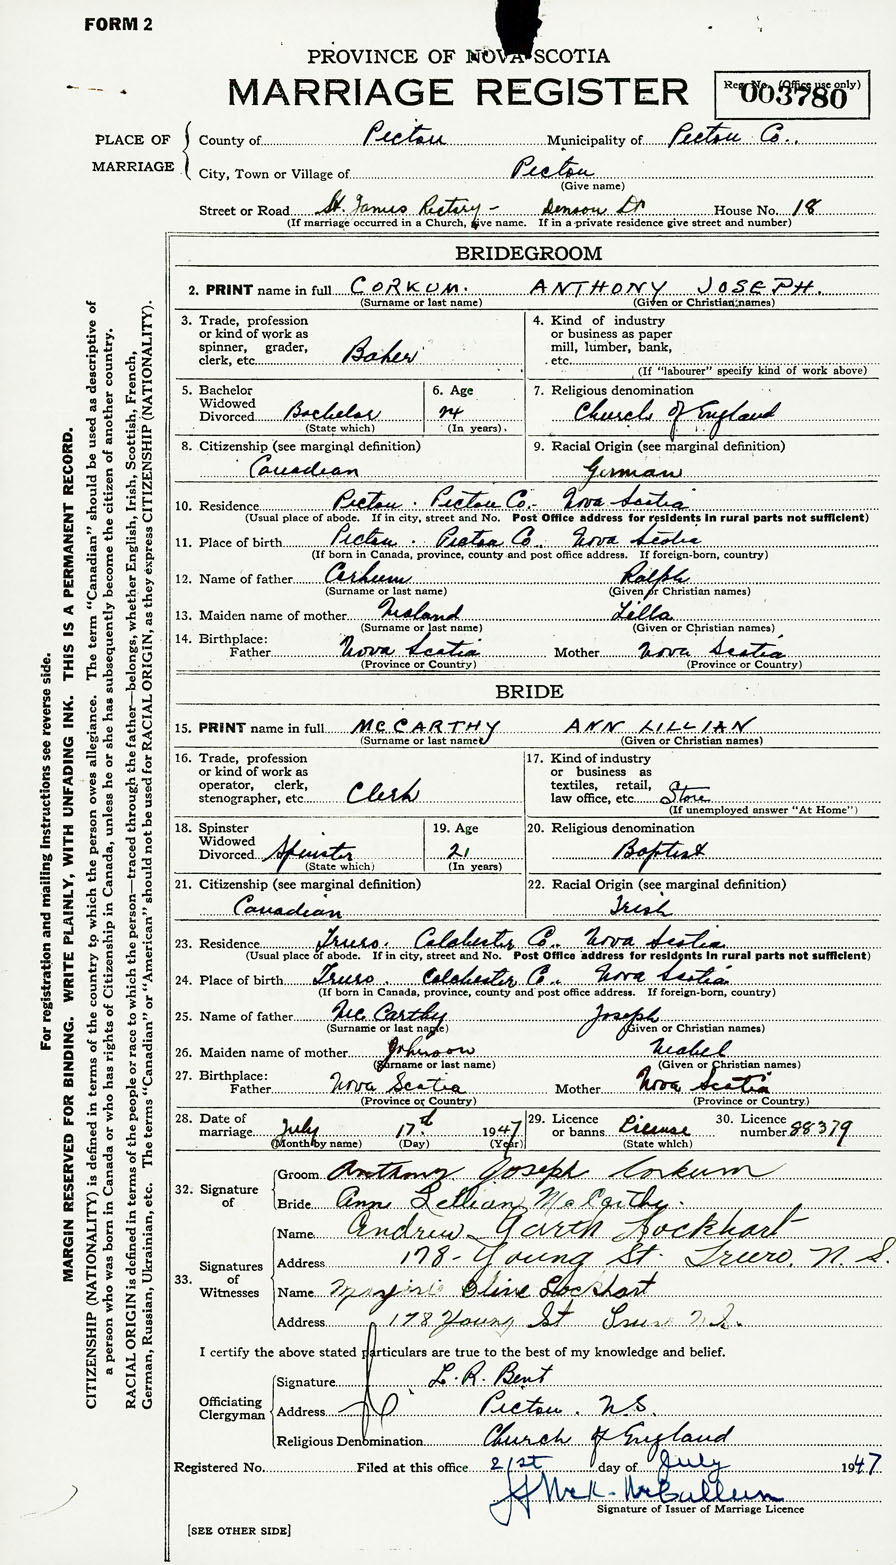 FORM 2
PROVINCE OF NOVA SCOTIA
MARRIAGE REGISTER
Reg. No. (Office use only)
003780
PLACE OF MARRIAGE
County of Pictou Municipality of Pictou Co.,
City, Town or Village of Pictou
(Give name)
Street or Road St. James Rectory - Denson St House No. 18
(If marriage occurred in a Church, give name. If in a private residence give street and number)
BRIDEGROOM
2. PRINT name in full CORKUM. ANTHONY JOSEPH.
(Surname or last name) (Given or Christian names)
3. Trade, profession or kind of work as spinner, grader, clerk, etc. Baker
4. Kind of industry or business as paper mill, lumber, bank, etc.
(If "labourer" specify kind of work above)
5. Bachelor Widowed Divorced Bachelor
(State which)
6. Age 24
(In years)
7. Religious denomination
Church of England
8. Citizenship (see marginal definition)
Canadian
9. Racial Origin (see marginal definition)
German
10. Residence Pictou. Pictou Co. Nova Scotia
(Usual place of abode. If in city, street and No. Post Office address for residents in rural parts not sufficient)
11. Place of birth Pictou. Pictou Co. Nova Scotia
(If born in Canada, province, county and post office address. If foreign-born, country)
12. Name of father Corkum Ralph
(Surname or last name) (Given or Christian names)
13. Maiden name of mother Lilla
(Surname or last name) (Given or Christian names)
14. Birthplace:
Father Nova Scotia Mother Nova Scotia
(Province or Country) (Province or Country)
BRIDE
15. PRINT name in full MCCARTHY ANN LILLIAN
(Surname or last name) (Given or Christian names)
16. Trade, profession or kind of work as operator, clerk, stenographer, etc. Clerk
17. Kind of industry or business as textiles, retail, law office, etc. Store
(If unemployed answer "At Home")
18. Spinster Widowed Divorced Spinster
(State which)
19. Age 21
(In years)
20. Religious denomination
Baptist
21. Citizenship (see marginal definition)
Canadian
22. Racial Origin (see marginal definition)
Irish
23. Residence Truro. Colchester Co., Nova Scotia
(Usual place of abode. If in city, street and No. Post Office address for residents in rural parts not sufficient)
24. Place of birth Truro. Colchester Co., Nova Scotia
(If born in Canada, province, county and post office address. If foreign-born, country)
25. Name of father McCarthy Joseph
(Surname or last name) (Given or Christian names)
26. Maiden name of mother Johnson Mabel
(Surname or last name) (Given or Christian names)
27. Birthplace:
Father Nova Scotia Mother Nova Scotia
(Province or Country) (Province or Country)
28. Date of marriage July 17th 1947
(Month by name) (Day) (Year)
29. Licence or banns License
(State which)
30. Licence number 88379
32. Signature of
Groom Anthony Joseph Corkum
Bride Ann Lillian McCarthy.
33. Signatures of Witnesses
Name Andrew Garth Lockhart
Address 178 - Young St. Truro, N.S.
Name Marjorie Olive Lockhart
Address 178 Young St Truro N.S.
I certify the above stated particulars are true to the best of my knowledge and belief.
Officiating Clergyman
Signature L. R. Bent
Address Pictou. N.S.
Religious Denomination Church of England
Registered No. Filed at this office 21st day of July 1947
McCullum
Signature of Issuer of Marriage Licence
[SEE OTHER SIDE]
For registration and mailing instructions see reverse side.
MARGIN RESERVED FOR BINDING. WRITE PLAINLY, WITH UNFADING INK. THIS IS A PERMANENT RECORD.
CITIZENSHIP (NATIONALITY) is defined in terms of the country to which the person owes allegiance. The term "Canadian" should be used as descriptive of
a person who was born in Canada or who has rights of Citizenship in Canada, unless he or she has subsequently become the citizen of another country.
RACIAL ORIGIN is defined in terms of the people or race to which the person—traced through the father—belongs, whether English, Irish, Scottish, French,
German, Russian, Ukrainian, etc. The terms "Canadian" or "American" should not be used for RACIAL ORIGIN, as they express CITIZENSHIP (NATIONALITY).